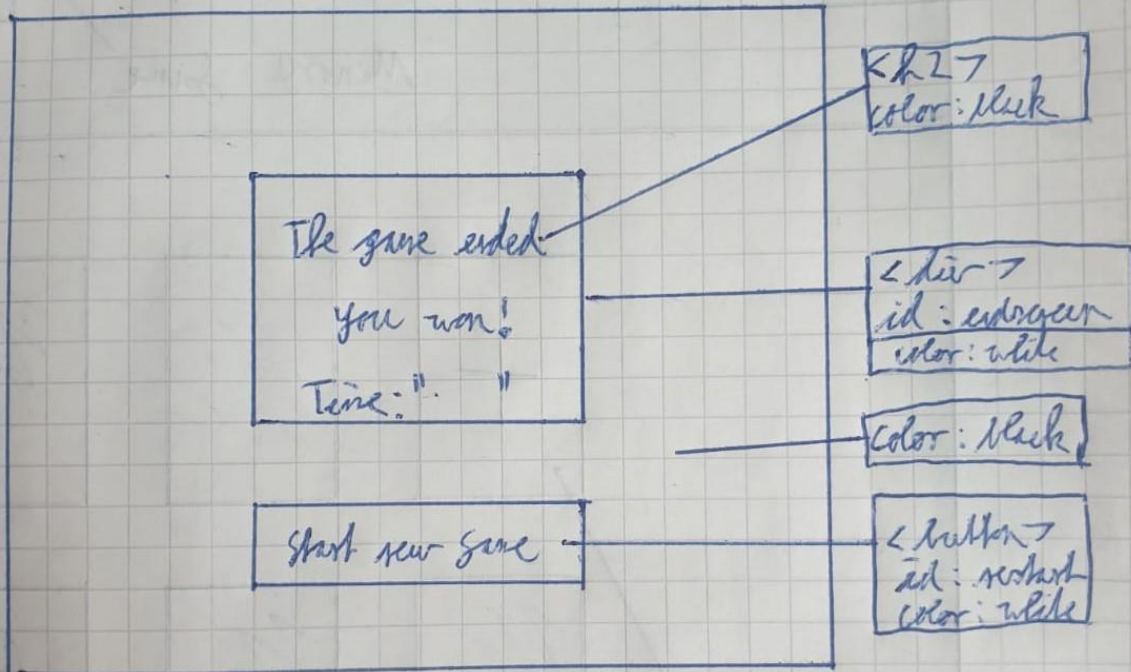 The game ended
you won!
Time: "   "
Start new game
<h2>
color: black
<div>
id: endscreen
color: white
color: black
<button>
id: restart
color: white